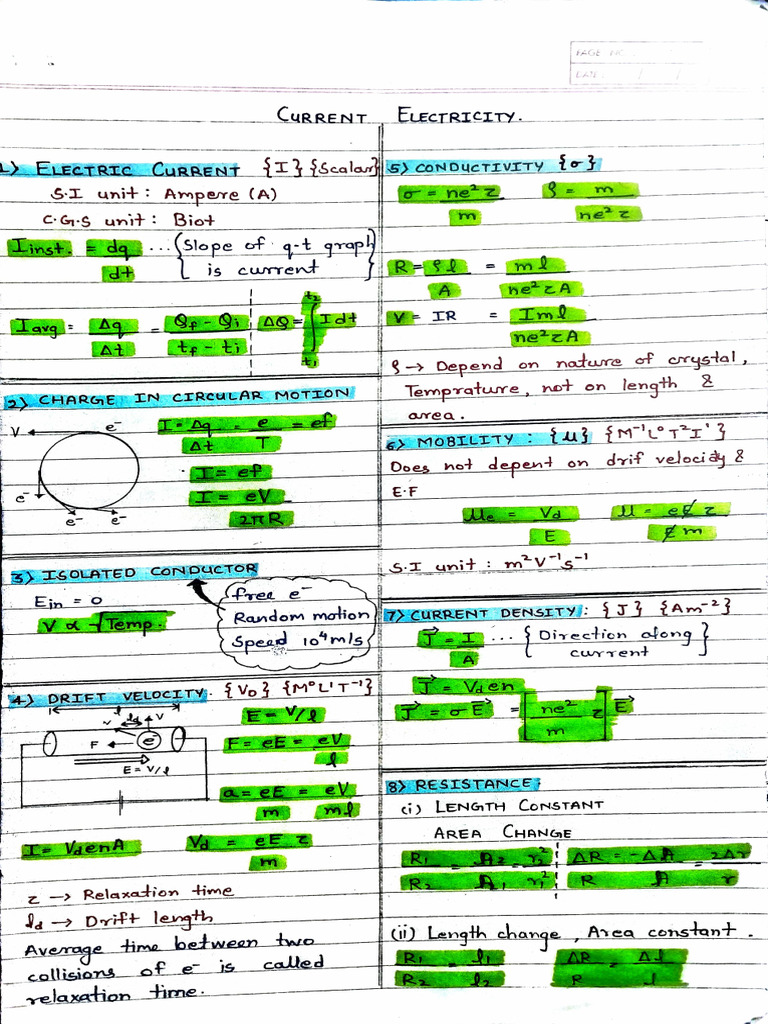 PAGE No.
DATE / /
CURRENT ELECTRICITY.
1) ELECTRIC CURRENT {I} {Scalar}
S.I unit : Ampere (A)
C.G.S unit : Biot
I inst. = dq/dt ... {Slope of q-t graph is current}
I avg = Δq/Δt = (Qf - Qi)/(tf - ti) ΔQ = ∫ t1 t2 I dt
2) CHARGE IN CIRCULAR MOTION
V e⁻
e⁻
e⁻ e⁻
I = Δq/Δt = e/T = ef
I = ef
I = eV/2πR
3) ISOLATED CONDUCTOR
Ein = 0
V ∝ √Temp.
free e⁻
Random motion
Speed 10⁴m/s
4) DRIFT VELOCITY. {VD} {M⁰L¹T⁻¹}
l
v ld V
F e⁻
E = V/l
E = V/l
F = eE = eV/l
a = eE/m = eV/ml
I = VdenA Vd = eE/m τ
τ → Relaxation time
ld → Drift length
Average time between two
collisions of e⁻ is called
relaxation time.
5) CONDUCTIVITY {σ}
σ = ne²τ/m ρ = m/ne²τ
R = ρl/A = ml/ne²τA
V = IR = Iml/ne²τA
ρ → Depend on nature of crystal,
Temprature, not on length &
area.
6) MOBILITY : {μ} {M⁻¹L⁰T²I¹}
Does not depent on drif velocidy &
E.F
μe = Vd/E μ = eE τ/E m
S.I unit : m²V⁻¹s⁻¹
7) CURRENT DENSITY : {J} {Am⁻²}
J⃗ = I/A ... {Direction along current}
J⃗ = Vden
J⃗ = σE⃗ = [ne²/m τ] E⃗
8) RESISTANCE:
(i) LENGTH CONSTANT
AREA CHANGE
R1/R2 = A2/A1 = r2²/r1² ΔR/R = -ΔA/A = 2Δr/r
(ii) Length change , Area constant .
R1/R2 = l1/l2 ΔR/R = Δl/l